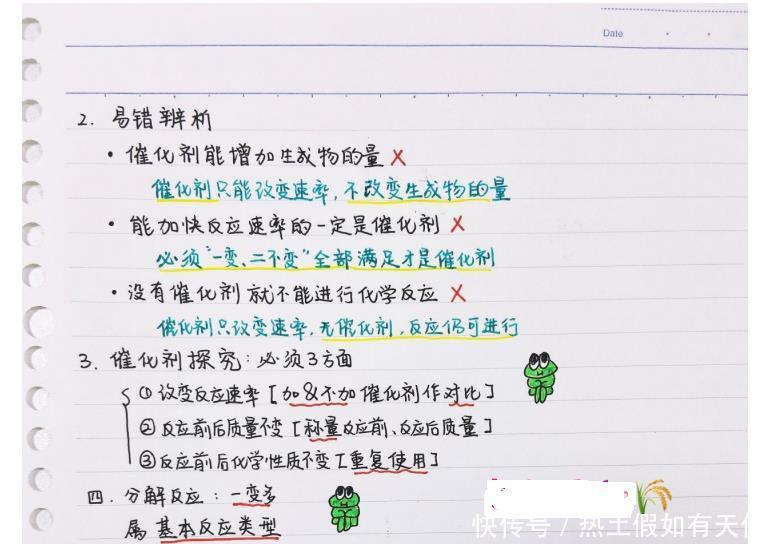 Date
2. 易错辨析
· 催化剂能增加生成物的量 X
催化剂只能改变速率,不改变生成物的量
· 能加快反应速率的一定是催化剂 X
必须"一变、二不变"全部满足才是催化剂
· 没有催化剂就不能进行化学反应 X
催化剂只改变速率,无催化剂,反应仍可进行
3. 催化剂探究:必须3方面
① 改变反应速率[加&不加催化剂作对比]
② 反应前后质量不变[称量反应前、反应后质量]
③ 反应前后化学性质不变[重复使用]
四. 分解反应:一变多
属基本反应类型
快传号/热土假如有天